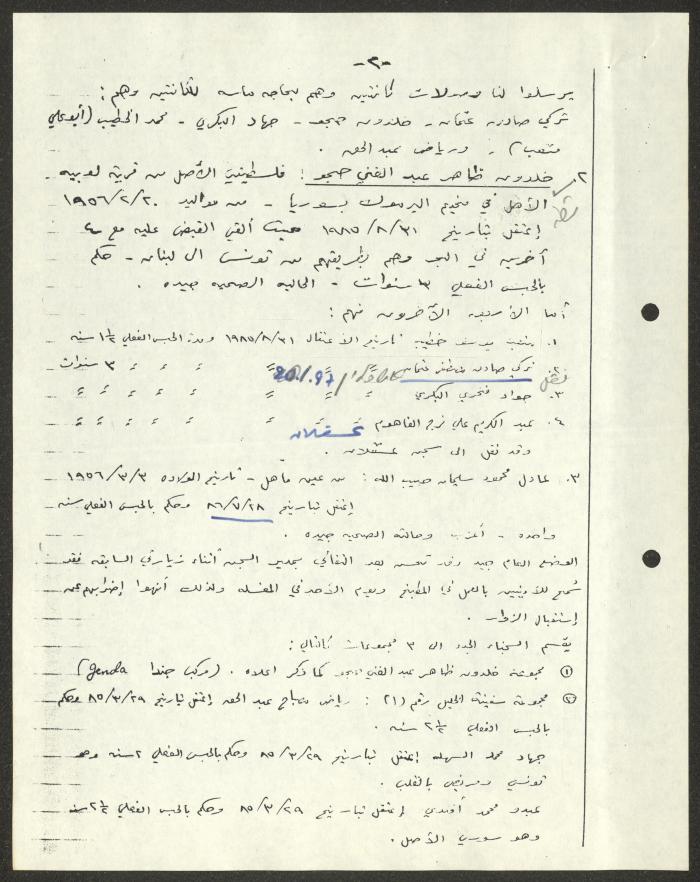 -٢-
يرسلوا لنا وصولات كانتين وهم بحاجه ماسه للكانتين وهم:
تركي صادق عثمان - خلدون صبحو - جهاد البكري - محمد الخطيب (أبو علي
متعب) - ورياض عبد الحق.
٢. خلدون ظاهر عبد الغني : فلسطيني الأصل من قرية لوبيه
الأهل في مخيم اليرموك بسوريا - من مواليد ١٩٥٦/٢/٢٠
إعتقل بتاريخ ١٩٨٥/٨/٣١ حيث ألقي القبض عليه مع ٤
آخرين في البحر وهم بطريقهم من تونس الى لبنان - حكم
بالحبس الفعلي ٣ سنوات - الحاله الصحيه جيده.
أما الأربعه الآخرون فهم:
١. يوسف خطيب تاريخ الاعتقال ١٩٨٥/٨/٣١ ومدة الحبس الفعلي ١½ سنه
٢. تركي صادق عثمان 20.1.97 ٣ سنوات
٣. جواد فخري البكري
٤. عبد الكريم علي فرج الفاهوم عسقلان
وقد نقل الى سجن عسقلان.
٣. عادل محمود سليمان حبيب الله : من عين ماهل - تاريخ الولاده ١٩٥٦/٣/٣
إعتقل بتاريخ ٨٦/٧/٢٨ وحكم بالحبس الفعلي سنه
واحده - أعزب وحالته الصحيه جيده.
الوضع العام جيد وقد تحسن بعد التقائي بمدير السجن أثناء زيارتي السابقه فقد
سُمح للأمنيين بالعمل في المطبخ ويوم الأحد في المغسله ولذلك أنهوا إضرابهم عن
إستقبال الزوار.
يقسم السجناء الجدد الى ٣ مجموعات كالتالي:
① مجموعة خلدون ظاهر عبد الغني كما ذكر اعلاه. (مركب جندا Genda)
② مجموعة سفينة الجليل رقم (٢١) : رياض عبد الحق إعتقل بتاريخ ٨٥/٣/٢٩ وحكم
بالحبس الفعلي ٢½ سنه.
جهاد محمد السهله إعتقل بتاريخ ٨٥/٣/٢٩ وحكم بالحبس الفعلي ٢ سنه وهو
تونسي ومريض بالقلب.
عبدو محمد أفندي إعتقل بتاريخ ٨٥/٣/٢٩ وحكم بالحبس الفعلي ٢½ سنه
وهو سوري الأصل.